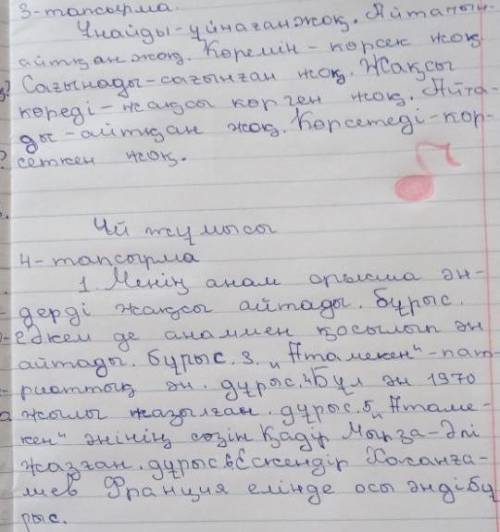 3-тапсырма.
Ұнайды-ұйнаған жоқ. Айтатын-
айтқан жоқ. Көремін - көрсек жоқ
Сағынады-сағынған жоқ. Жақсы
көреді - жақсы көрген жоқ. Айта-
ды - айтқан жоқ. Көрсетеді - көр-
сеткен жоқ.
Үй жұмысы
4-тапсырма
1. Менің анам орысша ән-
дерді жақсы айтады. бұрыс.
әкем де анаммен қосылып ән
айтады. бұрыс. 3. "Атамекен"-пат-
риоттық ән. дұрыс. 4 Бұл ән 1970
жылы жазылған. дұрыс. 5. "Атаме-
кен" әнінің сөзін Қадыр Мырза-Әлі
жазған. дұрыс 6 Ескендір Хасанға-
лиев Франция елінде осы әнді бұ
рыс.